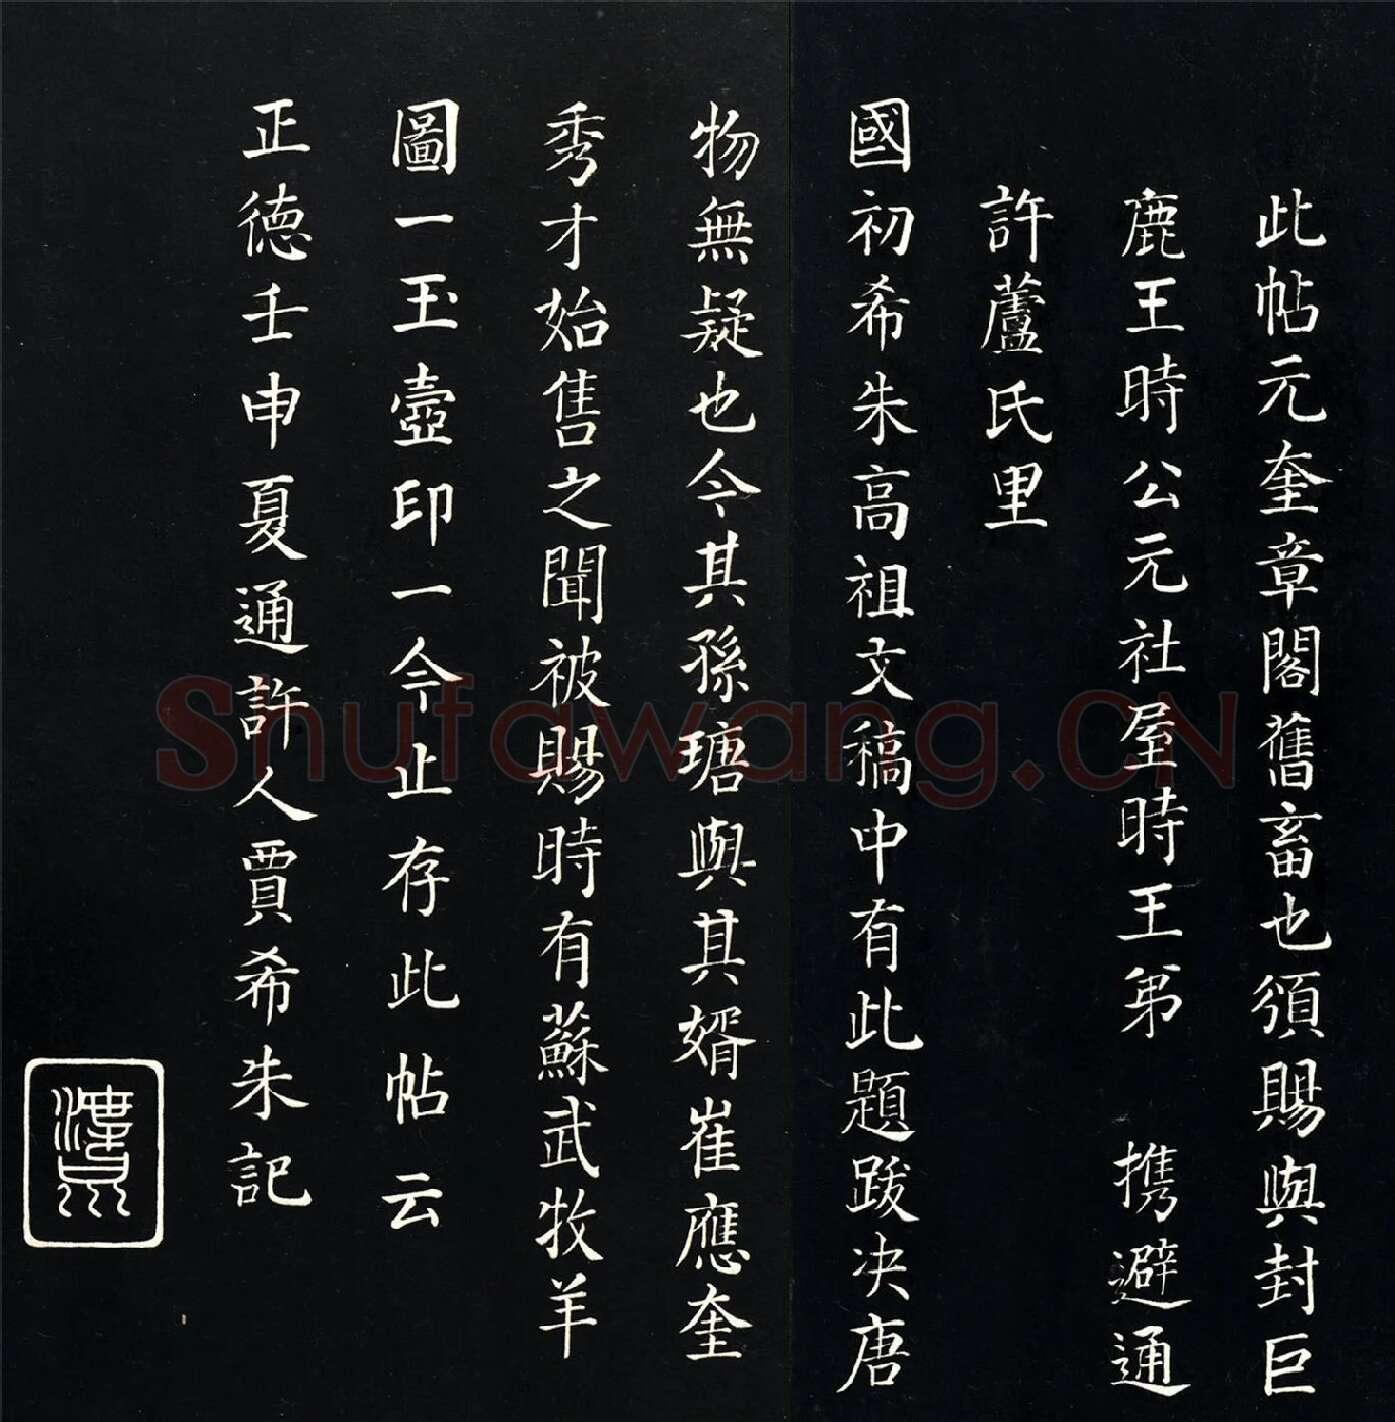 此帖元奎章閣舊畜也頒賜與封巨
鹿王時公元社屋時王弟 携避通
許蘆氏里
國初希朱高祖文稿中有此題跋决唐
物無疑也今其孫瑭與其婿崔應奎
秀才始售之聞被賜時有蘇武牧羊
圖一玉壺印一今止存此帖云
正德壬申夏通許人賈希朱記
Shufawang.CN